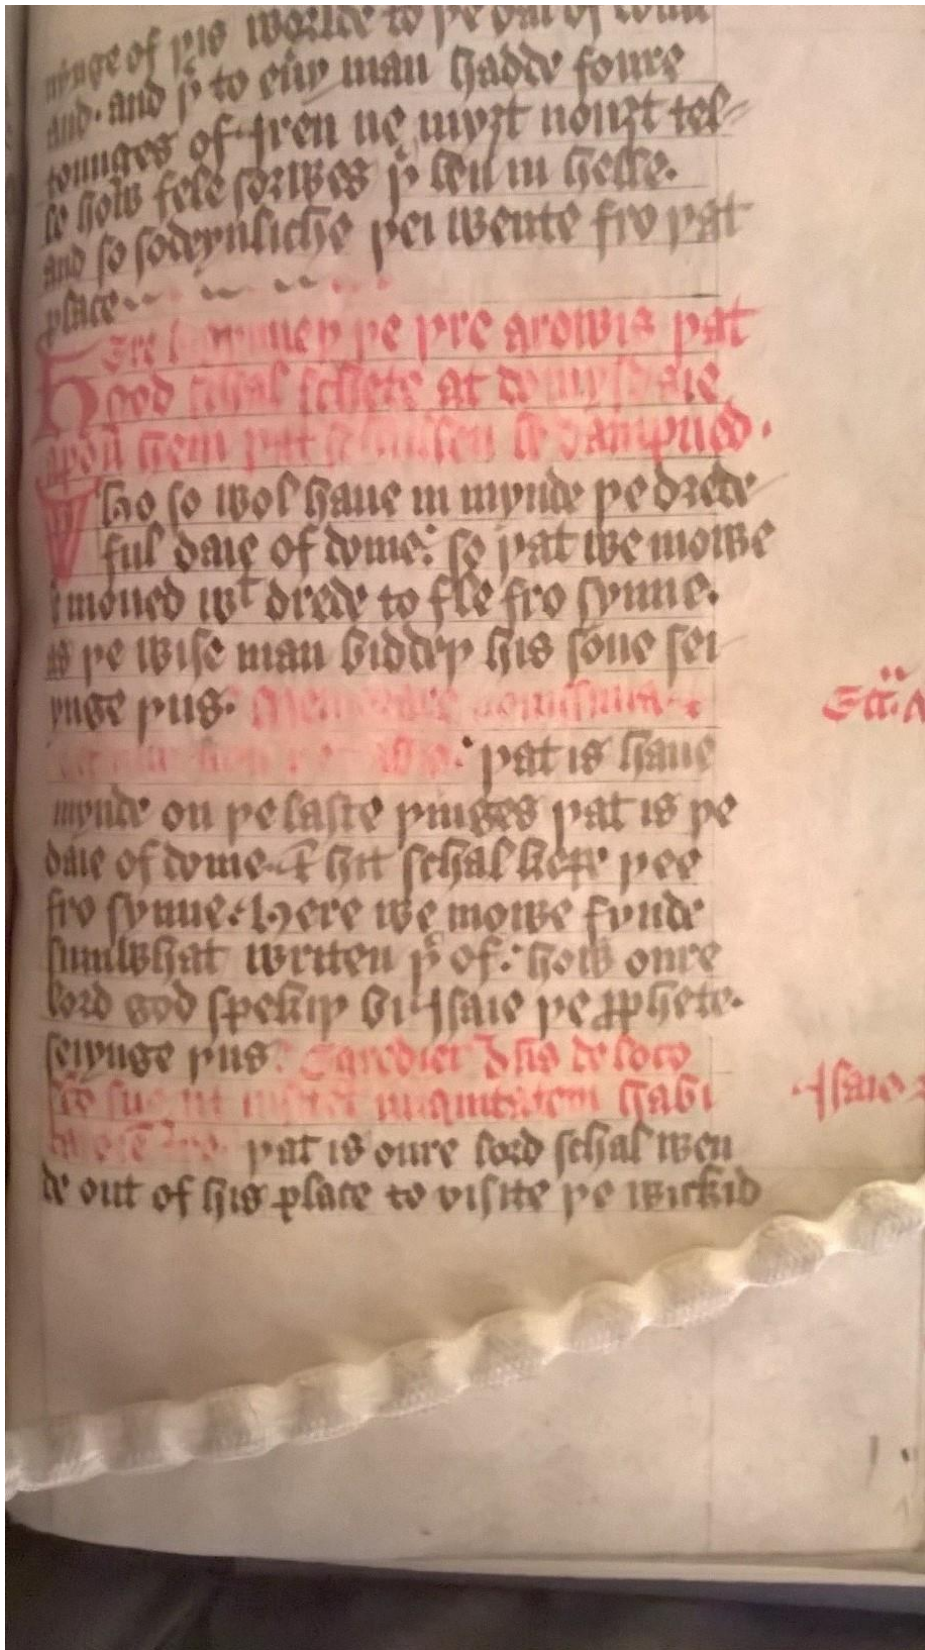 nynge of þis worlde to þe dai of
and. and þͬ to eny man hadde foure
tounges of iren ne myȝt nouȝt tel-
le how fele sorwes þͬ ben in helle.
and so sodeynliche þei wente fro þat
place
Here þe þre arowis þat
god schal schete at domysdaie
apon hem þat schullen be dampned.
Who so wol haue in mynde þe drede
ful daie of dome: so þat we mowe
moued wͭ drede to fle fro synne.
as þe wise man biddeþ his sone sei
ynge þus. nouissima. &
þat is haue
mynde on þe laste þinges þat is þe
daie of dome. & hit schal kepe þee
fro synne. Here we mowe fynde
sumwhat writen þͬ of: how oure
lord god spekiþ bi Isaie þe ꝓphete.
seiynge þus. Egredietͬ dn̄s de loco
suo ut iniquitatem habi
þat is oure lord schal wen
de out of his place to visite þe wickid
Ecc̄i.
Isaie